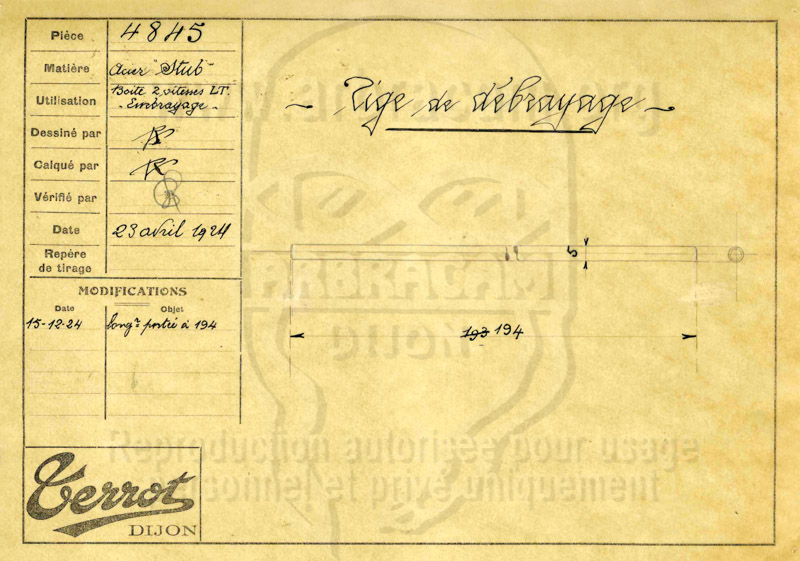 Pièce 4845
Matière Acier "Stub"
Utilisation Boite 2 vitesses LT.
- Embrayage -
Dessiné par
Calqué par
Vérifié par
Date 23 avril 1924
Repère
de tirage
MODIFICATIONS
Date Objet
15-12-24 longr portée à 194
~ Tige de débrayage ~
5
193 194
ARBRACAM
DIJON
Reproduction autorisée pour usage
personnel et privé uniquement
Terrot
DIJON